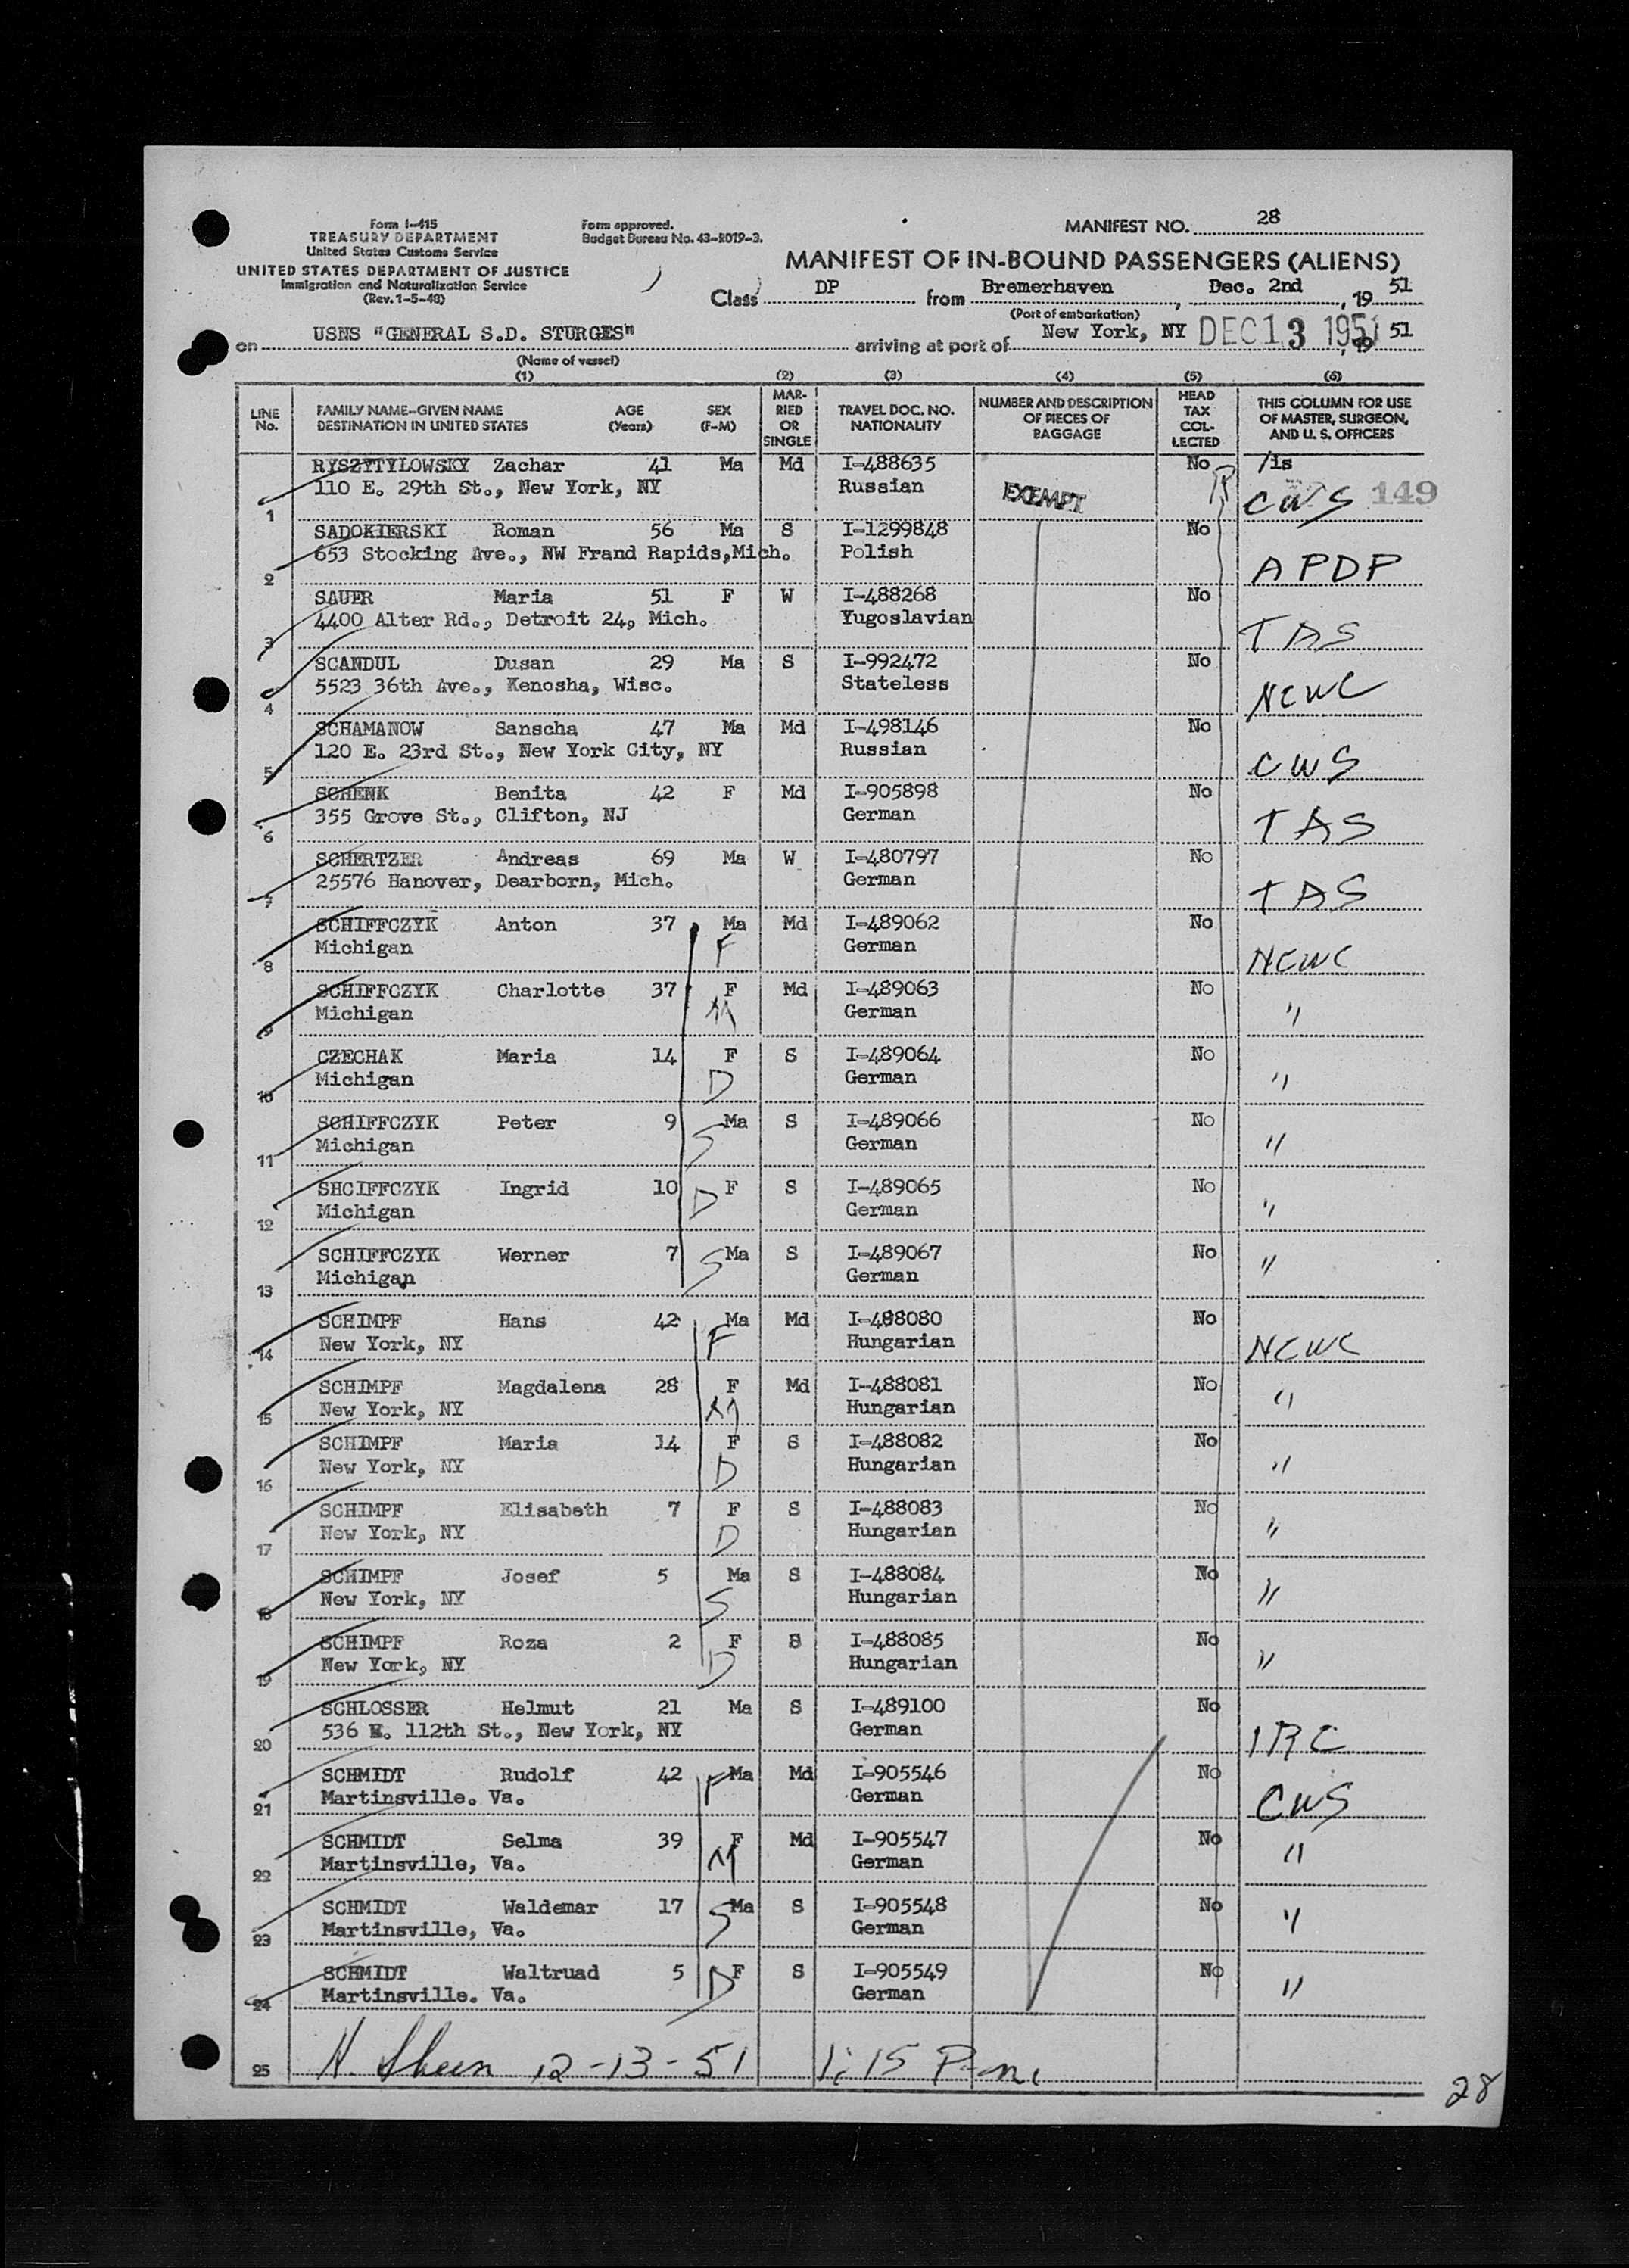 Form I-415
TREASURY DEPARTMENT
United States Customs Service
UNITED STATES DEPARTMENT OF JUSTICE
Immigration and Naturalization Service
(Rev. 1-5-48)
Form approved.
Budget Bureau No. 43-R019-3.
MANIFEST NO. 28
MANIFEST OF IN-BOUND PASSENGERS (ALIENS)
Class DP from Bremerhaven, Dec. 2nd, 19 51
(Port of embarkation)
on USNS "GENERAL S.D. STURGES" arriving at port of New York, NY DEC 13 1951, 19 51
(Name of vessel)
(1) (2) (3) (4) (5) (6)
LINE No. FAMILY NAME-GIVEN NAME DESTINATION IN UNITED STATES AGE (Years) SEX (F-M) MARRIED OR SINGLE TRAVEL DOC. NO. NATIONALITY NUMBER AND DESCRIPTION OF PIECES OF BAGGAGE HEAD TAX COLLECTED THIS COLUMN FOR USE OF MASTER, SURGEON, AND U. S. OFFICERS
RYSZYTYLOWSKY Zachar 41 Ma Md I-488635 No /is
110 E. 29th St., New York, NY Russian EXEMPT CWS 149
1
SADOKIERSKI Roman 56 Ma S I-1299848 No
653 Stocking Ave., NW Frand Rapids,Mich. Polish APDP
2
SAUER Maria 51 F W I-488268 No
4400 Alter Rd., Detroit 24, Mich. Yugoslavian TAS
3
SCANDUL Dusan 29 Ma S I-992472 No
5523 36th Ave., Kenosha, Wisc. Stateless NCWC
4
SCHAMANOW Sanscha 47 Ma Md I-498146 No
120 E. 23rd St., New York City, NY Russian CWS
5
SCHENK Benita 42 F Md I-905898 No
355 Grove St., Clifton, NJ German TAS
6
SCHERTZER Andreas 69 Ma W I-480797 No
25576 Hanover, Dearborn, Mich. German TAS
7
SCHIFFCZYK Anton 37 Ma Md I-489062 No
Michigan F German NCWC
8
SCHIFFCZYK Charlotte 37 F Md I-489063 No
Michigan M German "
9
CZECHAK Maria 14 F S I-489064 No
Michigan D German "
10
SCHIFFCZYK Peter 9 Ma S I-489066 No
Michigan S German "
11
SHCIFFCZYK Ingrid 10 D F S I-489065 No
Michigan German "
12
SCHIFFCZYK Werner 7 S Ma S I-489067 No
Michigan German "
13
SCHIMPF Hans 42 Ma Md I-488080 No
New York, NY F Hungarian NCWC
14
SCHIMPF Magdalena 28 F Md I-488081 No
New York, NY M Hungarian "
15
SCHIMPF Maria 14 F S I-488082 No
New York, NY D Hungarian "
16
SCHIMPF Elisabeth 7 F S I-488083 No
New York, NY D Hungarian "
17
SCHIMPF Josef 5 Ma S I-488084 No
New York, NY S Hungarian "
18
SCHIMPF Roza 2 F S I-488085 No
New York, NY D Hungarian "
19
SCHLOSSER Helmut 21 Ma S I-489100 No
536 E. 112th St., New York, NY German IRC
20
SCHMIDT Rudolf 42 F Ma Md I-905546 No
Martinsville. Va. German CWS
21
SCHMIDT Selma 39 F Md I-905547 No
Martinsville, Va. M German "
22
SCHMIDT Waldemar 17 S Ma S I-905548 No
Martinsville, Va. German "
23
SCHMIDT Waltruad 5 D F S I-905549 No
Martinsville. Va. German "
24
25 H. Sheen 12-13-51 1:15 P.m.
28